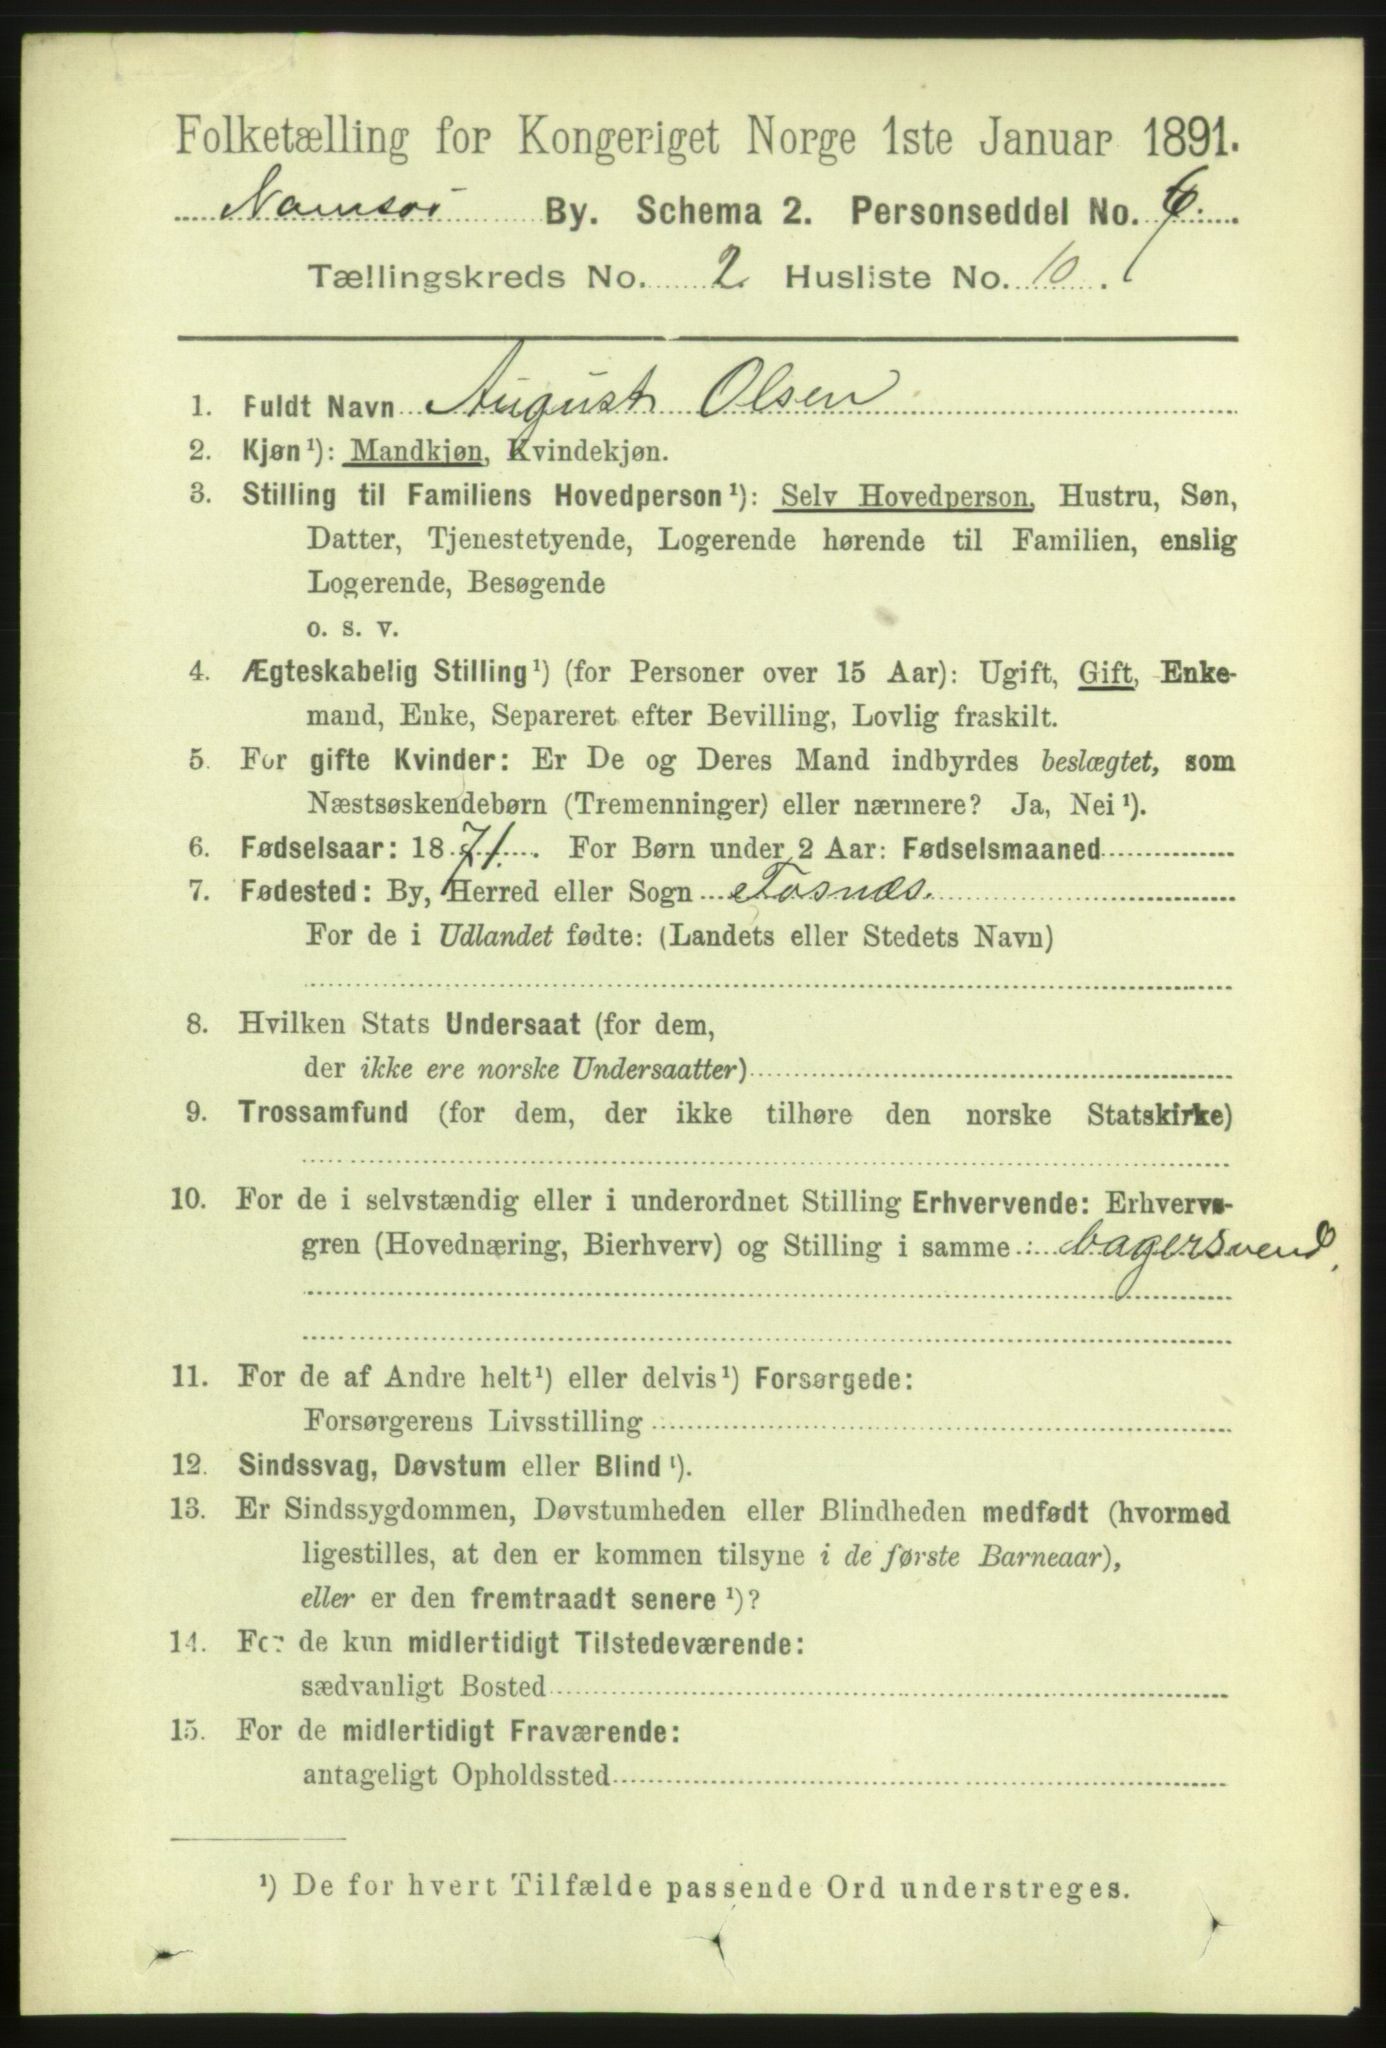 Folketælling for Kongeriget Norge 1ste Januar 1891.
Namsos By. Schema 2. Personseddel No.
Tællingskreds No. 2 Husliste No. 10.
1. Fuldt Navn August Olsen
2. Kjøn ¹): Mandkjøn, Kvindekjøn.
3. Stilling til Familiens Hovedperson ¹): Selv Hovedperson, Hustru, Søn,
Datter, Tjenestetyende, Logerende hørende til Familien, enslig
Logerende, Besøgende
o. s. v.
4. Ægteskabelig Stilling ¹) (for Personer over 15 Aar): Ugift, Gift, Enke-
mand, Enke, Separeret efter Bevilling, Lovlig fraskilt.
5. For gifte Kvinder: Er De og Deres Mand indbyrdes beslægtet, som
Næstsøskendebørn (Tremenninger) eller nærmere? Ja, Nei ¹).
6. Fødselsaar: 1871. For Børn under 2 Aar: Fødselsmaaned
7. Fødested: By, Herred eller Sogn Fosnæs.
For de i Udlandet fødte: (Landets eller Stedets Navn)
8. Hvilken Stats Undersaat (for dem,
der ikke ere norske Undersaatter)
9. Trossamfund (for dem, der ikke tilhøre den norske Statskirke)
10. For de i selvstændig eller i underordnet Stilling Erhvervende: Erhvervs-
gren (Hovednæring, Bierhverv) og Stilling i samme: bagersvend,
11. For de af Andre helt ¹) eller delvis ¹) Forsørgede:
Forsørgerens Livsstilling
12. Sindssvag, Døvstum eller Blind ¹).
13. Er Sindssygdommen, Døvstumheden eller Blindheden medfødt (hvormed
ligestilles, at den er kommen tilsyne i de første Barneaar),
eller er den fremtraadt senere ¹)?
14. For de kun midlertidigt Tilstedeværende:
sædvanligt Bosted
15. For de midlertidigt Fraværende:
antageligt Opholdssted
¹) De for hvert Tilfælde passende Ord understreges.